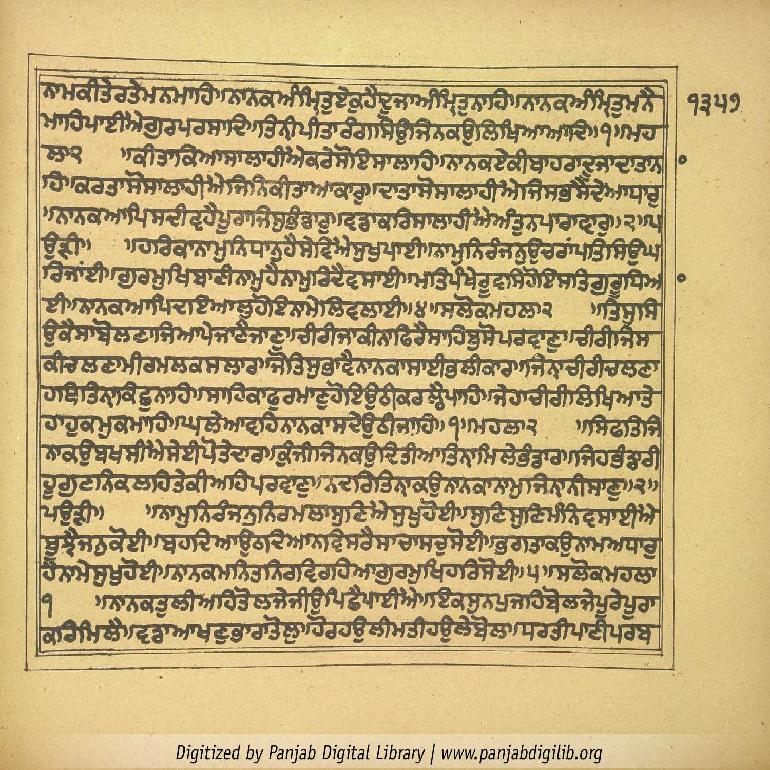 ਨਾਮਕੀਤੇਰਤੇਮਨਮਾਹਿ॥ਨਾਨਕਅੰਮ੍ਰਿਤੁਏਕੁਹੈਦੂਜਾਅੰਮ੍ਰਿਤੁਨਾਹਿ॥ਨਾਨਕਅੰਮ੍ਰਿਤੁਮਨੈ
੧੩੫੭
ਮਾਹਿਪਾਈਐਗੁਰਪਰਸਾਦਿ॥ਤਿਨੀਪੀਤਾਰੰਗਸਿਉਜਿਨਕਉਲਿਖਿਆਆਦਿ॥੧॥ਮਹ
ਲਾ੨ ॥ਕੀਤਾਕਿਆਸਾਲਾਹੀਐਕਰੇਸੋਇਸਾਲਾਹਿ॥ਨਾਨਕਏਕੀਬਾਹਰਾਦੂਜਾਦਾਤਾਨ
ਹਿ॥ਕਰਤਾਸੋਸਾਲਾਹੀਐਜਿਨਿਕੀਤਾਆਕਾਰੁ॥ਦਾਤਾਸੋਸਾਲਾਹੀਐਜਿਸਭਸੈਦੇਆਧਾਰੁ
॥ਨਾਨਕਆਪਿਸਦੀਵਹੈਪੂਰਾਜਿਸੁਭੰਡਾਰੁ॥ਵਡਾਕਰਿਸਾਲਾਹੀਐਅੰਤੁਨਪਾਰਾਵਾਰੁ॥੨॥ਪ
ਉੜੀ॥ ॥ਹਰਿਕਾਨਾਮੁਨਿਧਾਨੁਹੈਸੇਵਿਐਸੁਖੁਪਾਈ॥ਨਾਮੁਨਿਰੰਜਨੁਉਚਰਾਂਪਤਿਸਿਉਘ
ਰਿਜਾਂਈ॥ਗੁਰਮੁਖਿਬਾਣੀਨਾਮੁਹੈਨਾਮੁਰਿਦੈਵਸਾਈ॥ਮਤਿਪੰਖੇਰੂਵਸਿਹੋਇਸਤਿਗੁਰੂਧਿਆ
ਈ॥ਨਾਨਕਆਪਿਦਇਆਲੁਹੋਇਨਾਮੇਲਿਵਲਾਈ॥੪॥ਸਲੋਕਮਹਲਾ੨ ॥ਤਿਸੁਸਿ
ਉਕੈਸਾਬੋਲਣਾਜਿਆਪੇਜਾਣੈਜਾਣੁ॥ਚੀਰੀਜਾਕੀਨਾਫਿਰੈਸਾਹਿਬੁਸੋਪਰਵਾਣੁ॥ਚੀਰੀਜਿਸ
ਕੀਚਲਣਾਮੀਰਮਲਕਸਲਾਰ॥ਜੋਤਿਸੁਭਾਵੈਨਾਨਕਾਸਾਈਭਲੀਕਾਰ॥ਜਿਨਾਚੀਰੀਚਲਣਾ
ਹਥਿਤਿਨਾਕਿਛੁਨਾਹਿ॥ਸਾਹਿਕਾਫੁਰਮਾਣੁਹੋਇਉਠੀਕਰਲੈਪਾਹਿ॥ਜੇਹਾਚੀਰੀਲਿਖਿਆਤੇ
ਹਾਹੁਕਮੁਕਮਾਹਿ॥ਘਲੇਆਵਹਿਨਾਨਕਾਸਦੇਉਠੀਜਾਹਿ॥੧॥ਮਹਲਾ੨ ॥ਸਿਫਤਿਜਿ
ਨਾਕਉਬਖਸੀਐਸੇਈਪੋਤੇਦਾਰ॥ਕੁੰਜੀਜਿਨਕਉਦਿਤੀਆਤਿਨਾਮਿਲੇਭੰਡਾਰ॥ਜਿਹਭੰਡਾਰੀ
ਹੂਗੁਣਨਿਕਲਹਿਤੇਕੀਅਹਿਪਰਵਾਣੁ॥ਨਦਰਿਤਿਨਾਕਉਨਾਨਕਾਨਾਮੁਜਿਨਾਨੀਸਾਣੁ॥੨॥
ਪਉੜੀ॥ ॥ਨਾਮੁਨਿਰੰਜਨੁਨਿਰਮਲਾਸੁਣਿਐਸੁਖੁਹੋਈ॥ਸੁਣਿਸੁਣਿਮੰਨਿਵਸਾਈਐ
ਬੂਝੈਜਨੁਕੋਈ॥ਬਹਦਿਆਉਠਦਿਆਨਵਿਸਰੈਸਾਚਾਸਚੁਸੋਈ॥ਭਗਤਾਕਉਨਾਮਅਧਾਰੁ
ਹੈਨਾਮੇਸੁਖੁਹੋਈ॥ਨਾਨਕਮਨਿਤਨਿਰਵਿਰਹਿਆਗੁਰਮੁਖਿਹਰਿਸੋਈ॥੫॥ਸਲੋਕਮਹਲਾ
੧ ॥ਨਾਨਕਤੁਲੀਅਹਿਤੋਲਜੇਜੀਉਪਿਛੈਪਾਈਐ॥ਇਕਸੁਨਪੁਜਹਿਬੋਲਜੇਪੂਰੇਪੂਰਾ
ਕਰਿਮਿਲੈ॥ਵਡਾਆਖਣੁਭਾਰਾਤੋਲੁ॥ਹੋਰਹਉਲੀਮਤੀਹਉਲੇਬੋਲ॥ਧਰਤੀਪਾਣੀਪਰਬ
Digitized by Panjab Digital Library | www.panjabdigilib.org